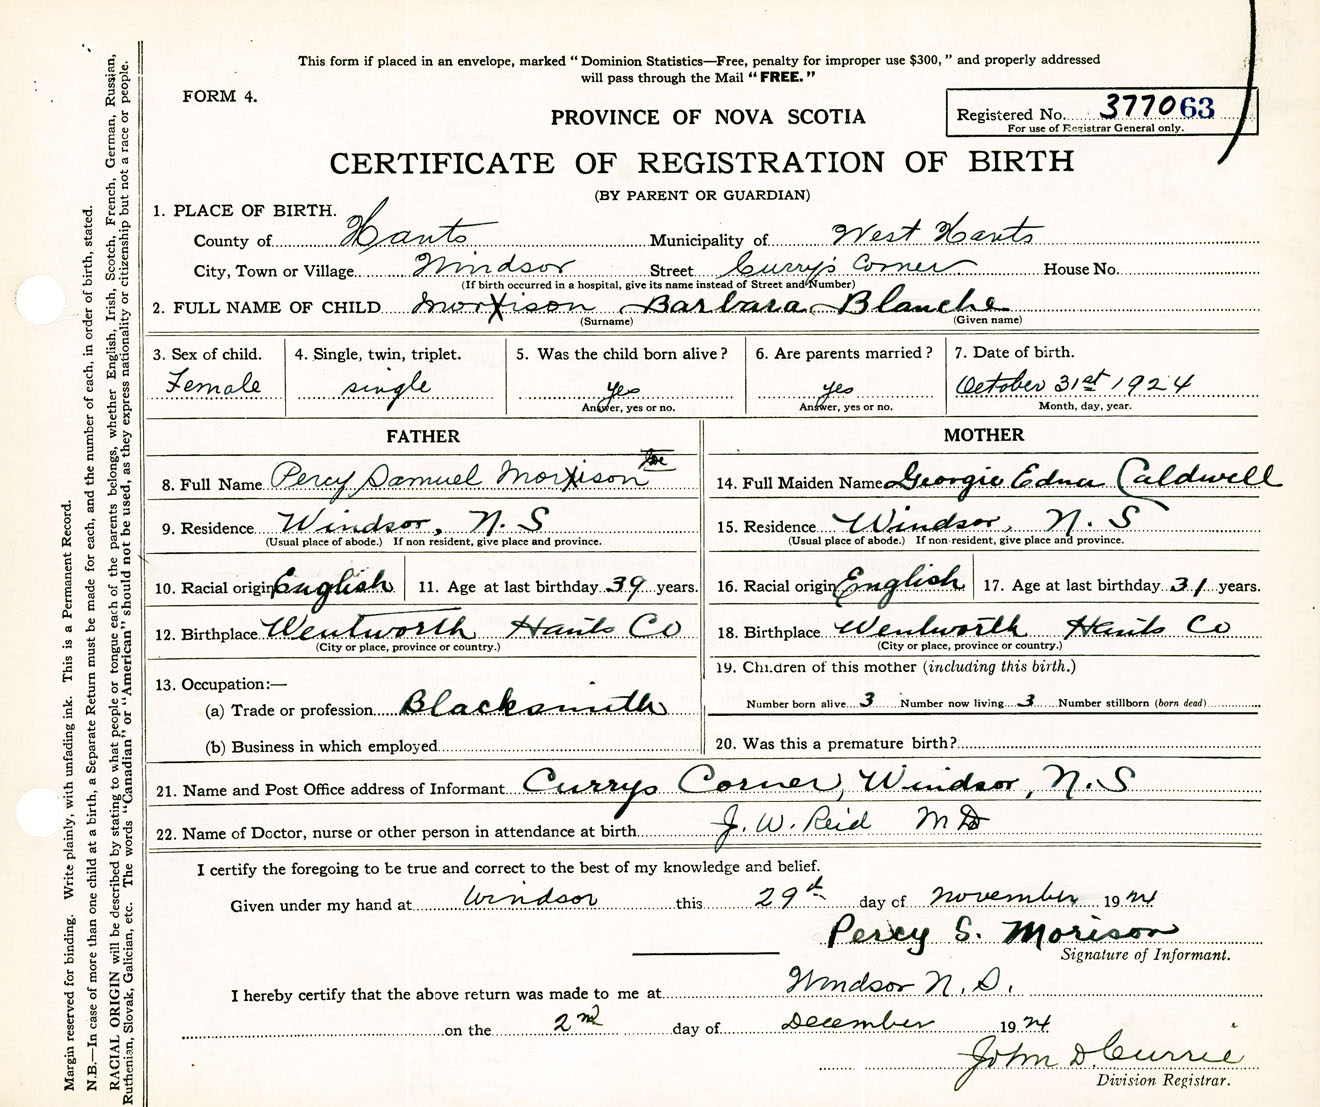 This form if placed in an envelope, marked "Dominion Statistics—Free, penalty for improper use $300," and properly addressed
will pass through the Mail "FREE."
FORM 4.
PROVINCE OF NOVA SCOTIA
Registered No. 377063
For use of Registrar General only.
CERTIFICATE OF REGISTRATION OF BIRTH
(BY PARENT OR GUARDIAN)
1. PLACE OF BIRTH.
County of Hants Municipality of West Hants
City, Town or Village Windsor Street Currys Corner House No.
(If birth occurred in a hospital, give its name instead of Street and Number)
2. FULL NAME OF CHILD Morrison Barbara Blanche
(Surname) (Given name)
3. Sex of child. 4. Single, twin, triplet. 5. Was the child born alive? 6. Are parents married? 7. Date of birth.
Female single yes yes October 31st 1924
Answer, yes or no. Answer, yes or no. Month, day, year.
FATHER MOTHER
8. Full Name Percy Samuel Morrison 14. Full Maiden Name Georgie Edna Caldwell
9. Residence Windsor, N.S 15. Residence Windsor, N.S
(Usual place of abode.) If non resident, give place and province. (Usual place of abode.) If non-resident, give place and province.
10. Racial origin English 11. Age at last birthday 39 years. 16. Racial origin English 17. Age at last birthday 31 years.
12. Birthplace Wentworth Hants Co 18. Birthplace Wentworth Hants Co
(City or place, province or country.) (City or place, province or country.)
13. Occupation:— 19. Children of this mother (including this birth.)
(a) Trade or profession Blacksmith Number born alive 3 Number now living 3 Number stillborn (born dead)
(b) Business in which employed 20. Was this a premature birth?
21. Name and Post Office address of Informant Currys Corner, Windsor, N.S
22. Name of Doctor, nurse or other person in attendance at birth J. W. Reid M D
I certify the foregoing to be true and correct to the best of my knowledge and belief.
Given under my hand at Windsor this 29th day of November 1924
Percy S. Morison
Signature of Informant.
I hereby certify that the above return was made to me at Windsor N.S.
on the 2nd day of December 1924
John D. Currie
Division Registrar.
Margin reserved for binding. Write plainly, with unfading ink. This is a Permanent Record.
N.B.—In case of more than one child at a birth, a Separate Return must be made for each, and the number of each, in order of birth, stated.
RACIAL ORIGIN will be described by stating to what people or tongue each of the parents belongs, whether English, Irish, Scotch, French, German, Russian,
Ruthenian, Slovak, Galician, etc. The words "Canadian" or "American" should not be used, as they express nationality or citizenship but not a race or people.